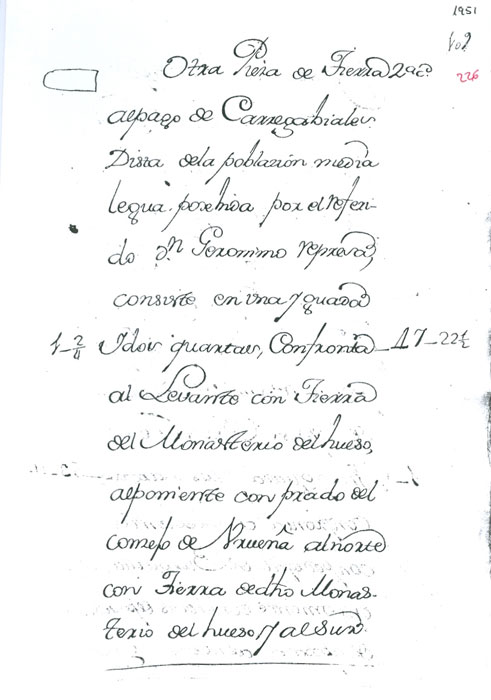 1951
226
Otra Pieza de Tierra 2ª cd
al pago de Carregabiales
Dista de la poblazion media
legua. posehida por el referi-
do Dn Geronimo represa,
consiste en una yguada
1-2/4 Y dos quartas, Confronta 17-22½
al Levante con Tierra
del Monasterio del hueso,
al poniente con prado del
comzejo de Urueña al norte
con Tierra de dho Monas-
terio del hueso y al Sur